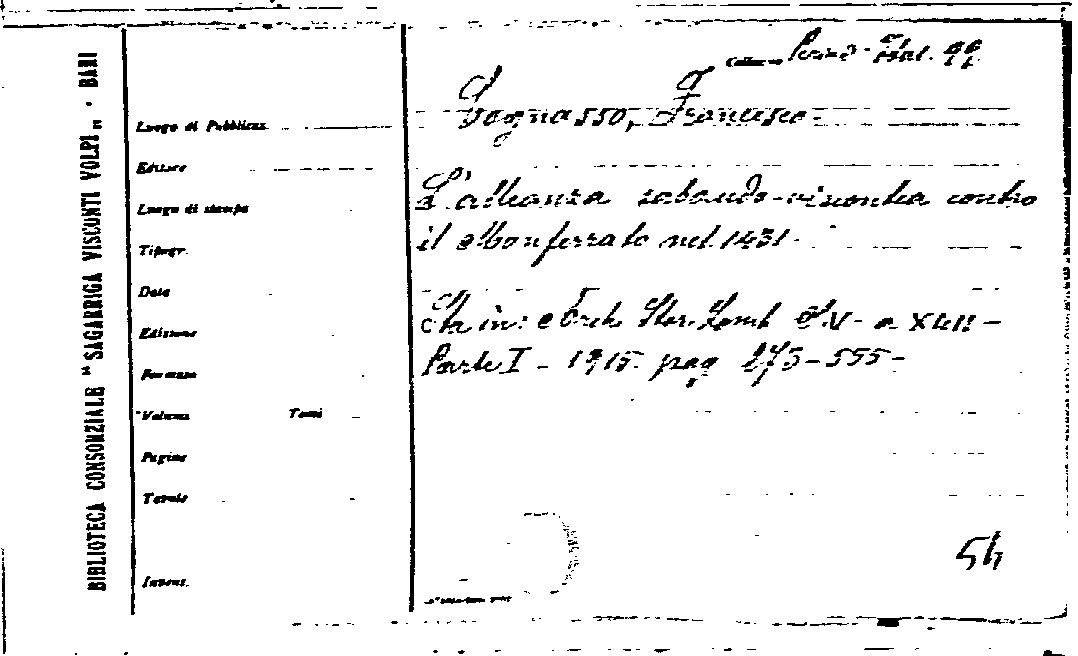 BIBLIOTECA CONSORZIALE "SAGARRIGA VISCONTI VOLPI" - BARI
Collocaz. Perio. Ital. 99
Cognasso, Francesco-
Luogo di Pubblicaz.
Editore
L'alleanza sabaudo-viscontea contro
Luogo di stampa
il Monferrato nel 1431-
Tipogr.
Data
Sta in: Arch. Stor. Lomb. S.V- a XLII-
Edizione
Parte I - 1915- pag 273-555-
Formato
Volume Tomi
Pagine
Tavole
Invent.